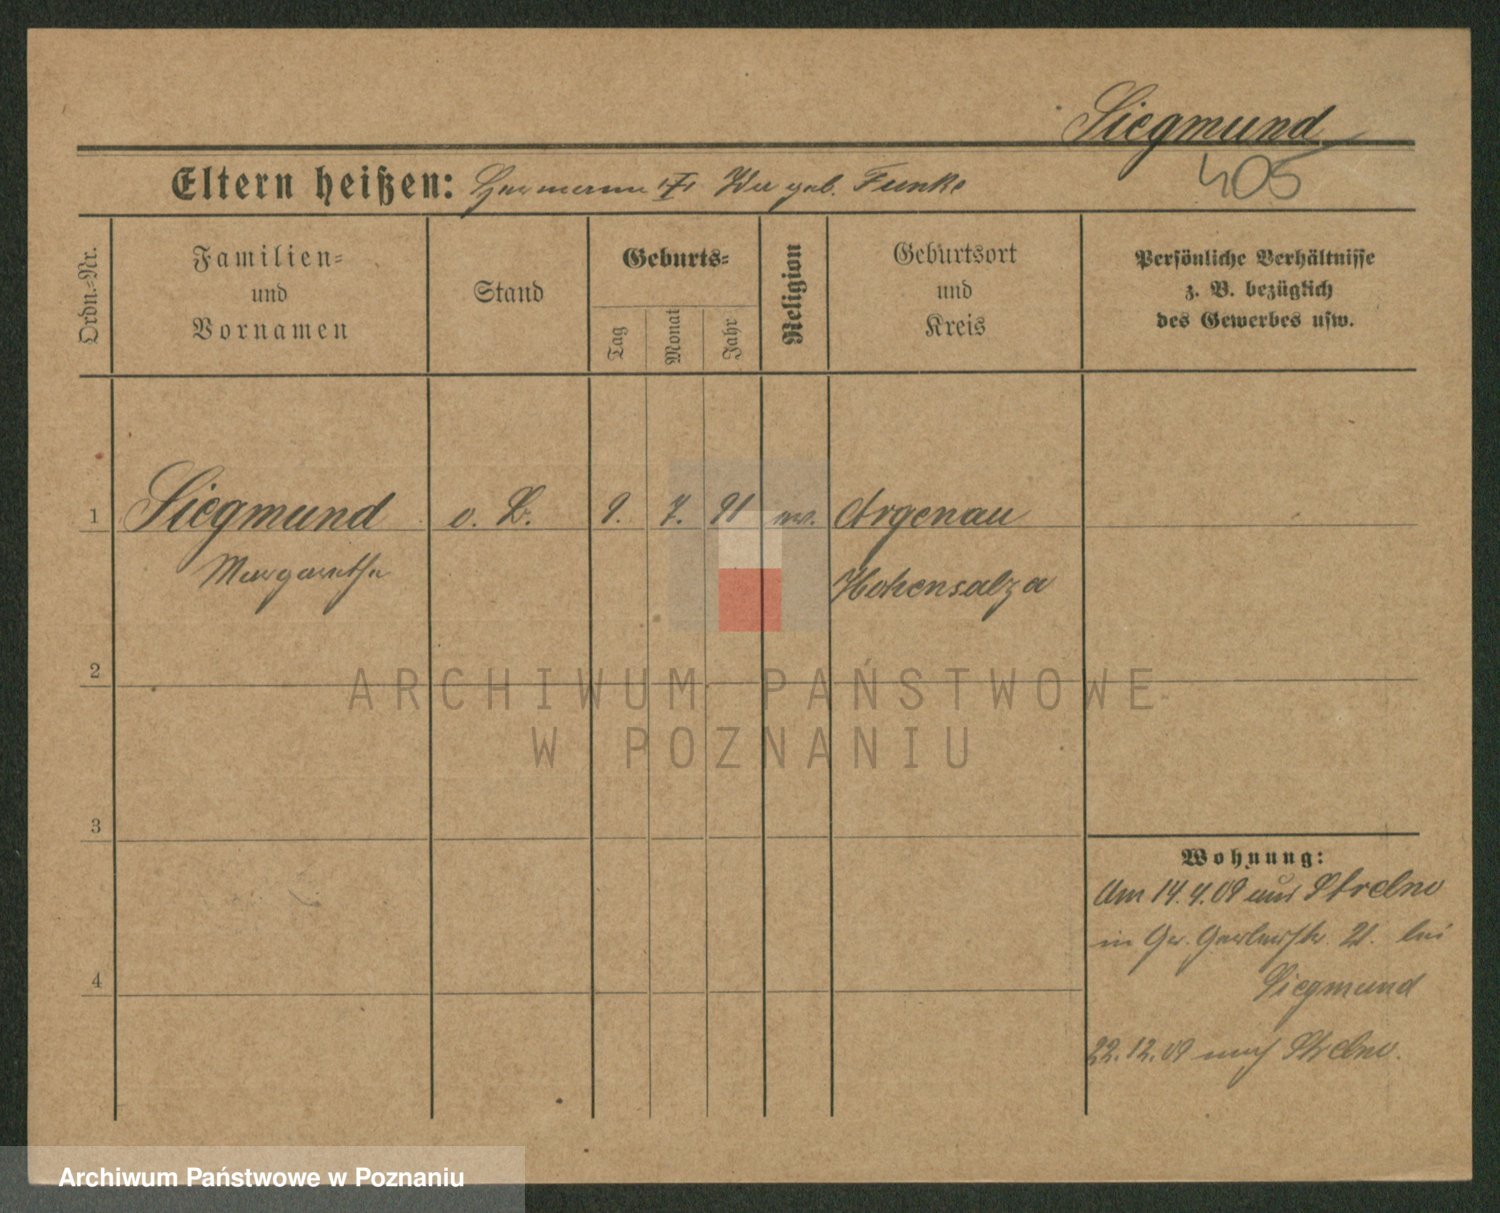 Siegmund
405
Eltern heißen: Hermann u. geb. Funke
Ordn.-Nr.
Familien-
und
Vornamen
Stand
Geburts-
Tag
Monat
Jahr
Religion
Geburtsort
und
Kreis
Persönliche Verhältnisse
z. B. bezüglich
des Gewerbes usw.
1 Siegmund o. B. 9. 7. 91 ev. Argenau
Margarethe Hohensalza
2
3
4
Wohnung:
Am 14.4.09 aus Strelno
in Gr. Gerberstr. 21. bei
Siegmund
22.12.09 nach Strelno.
ARCHIWUM PAŃSTWOWE
W POZNANIU
Archiwum Państwowe w Poznaniu